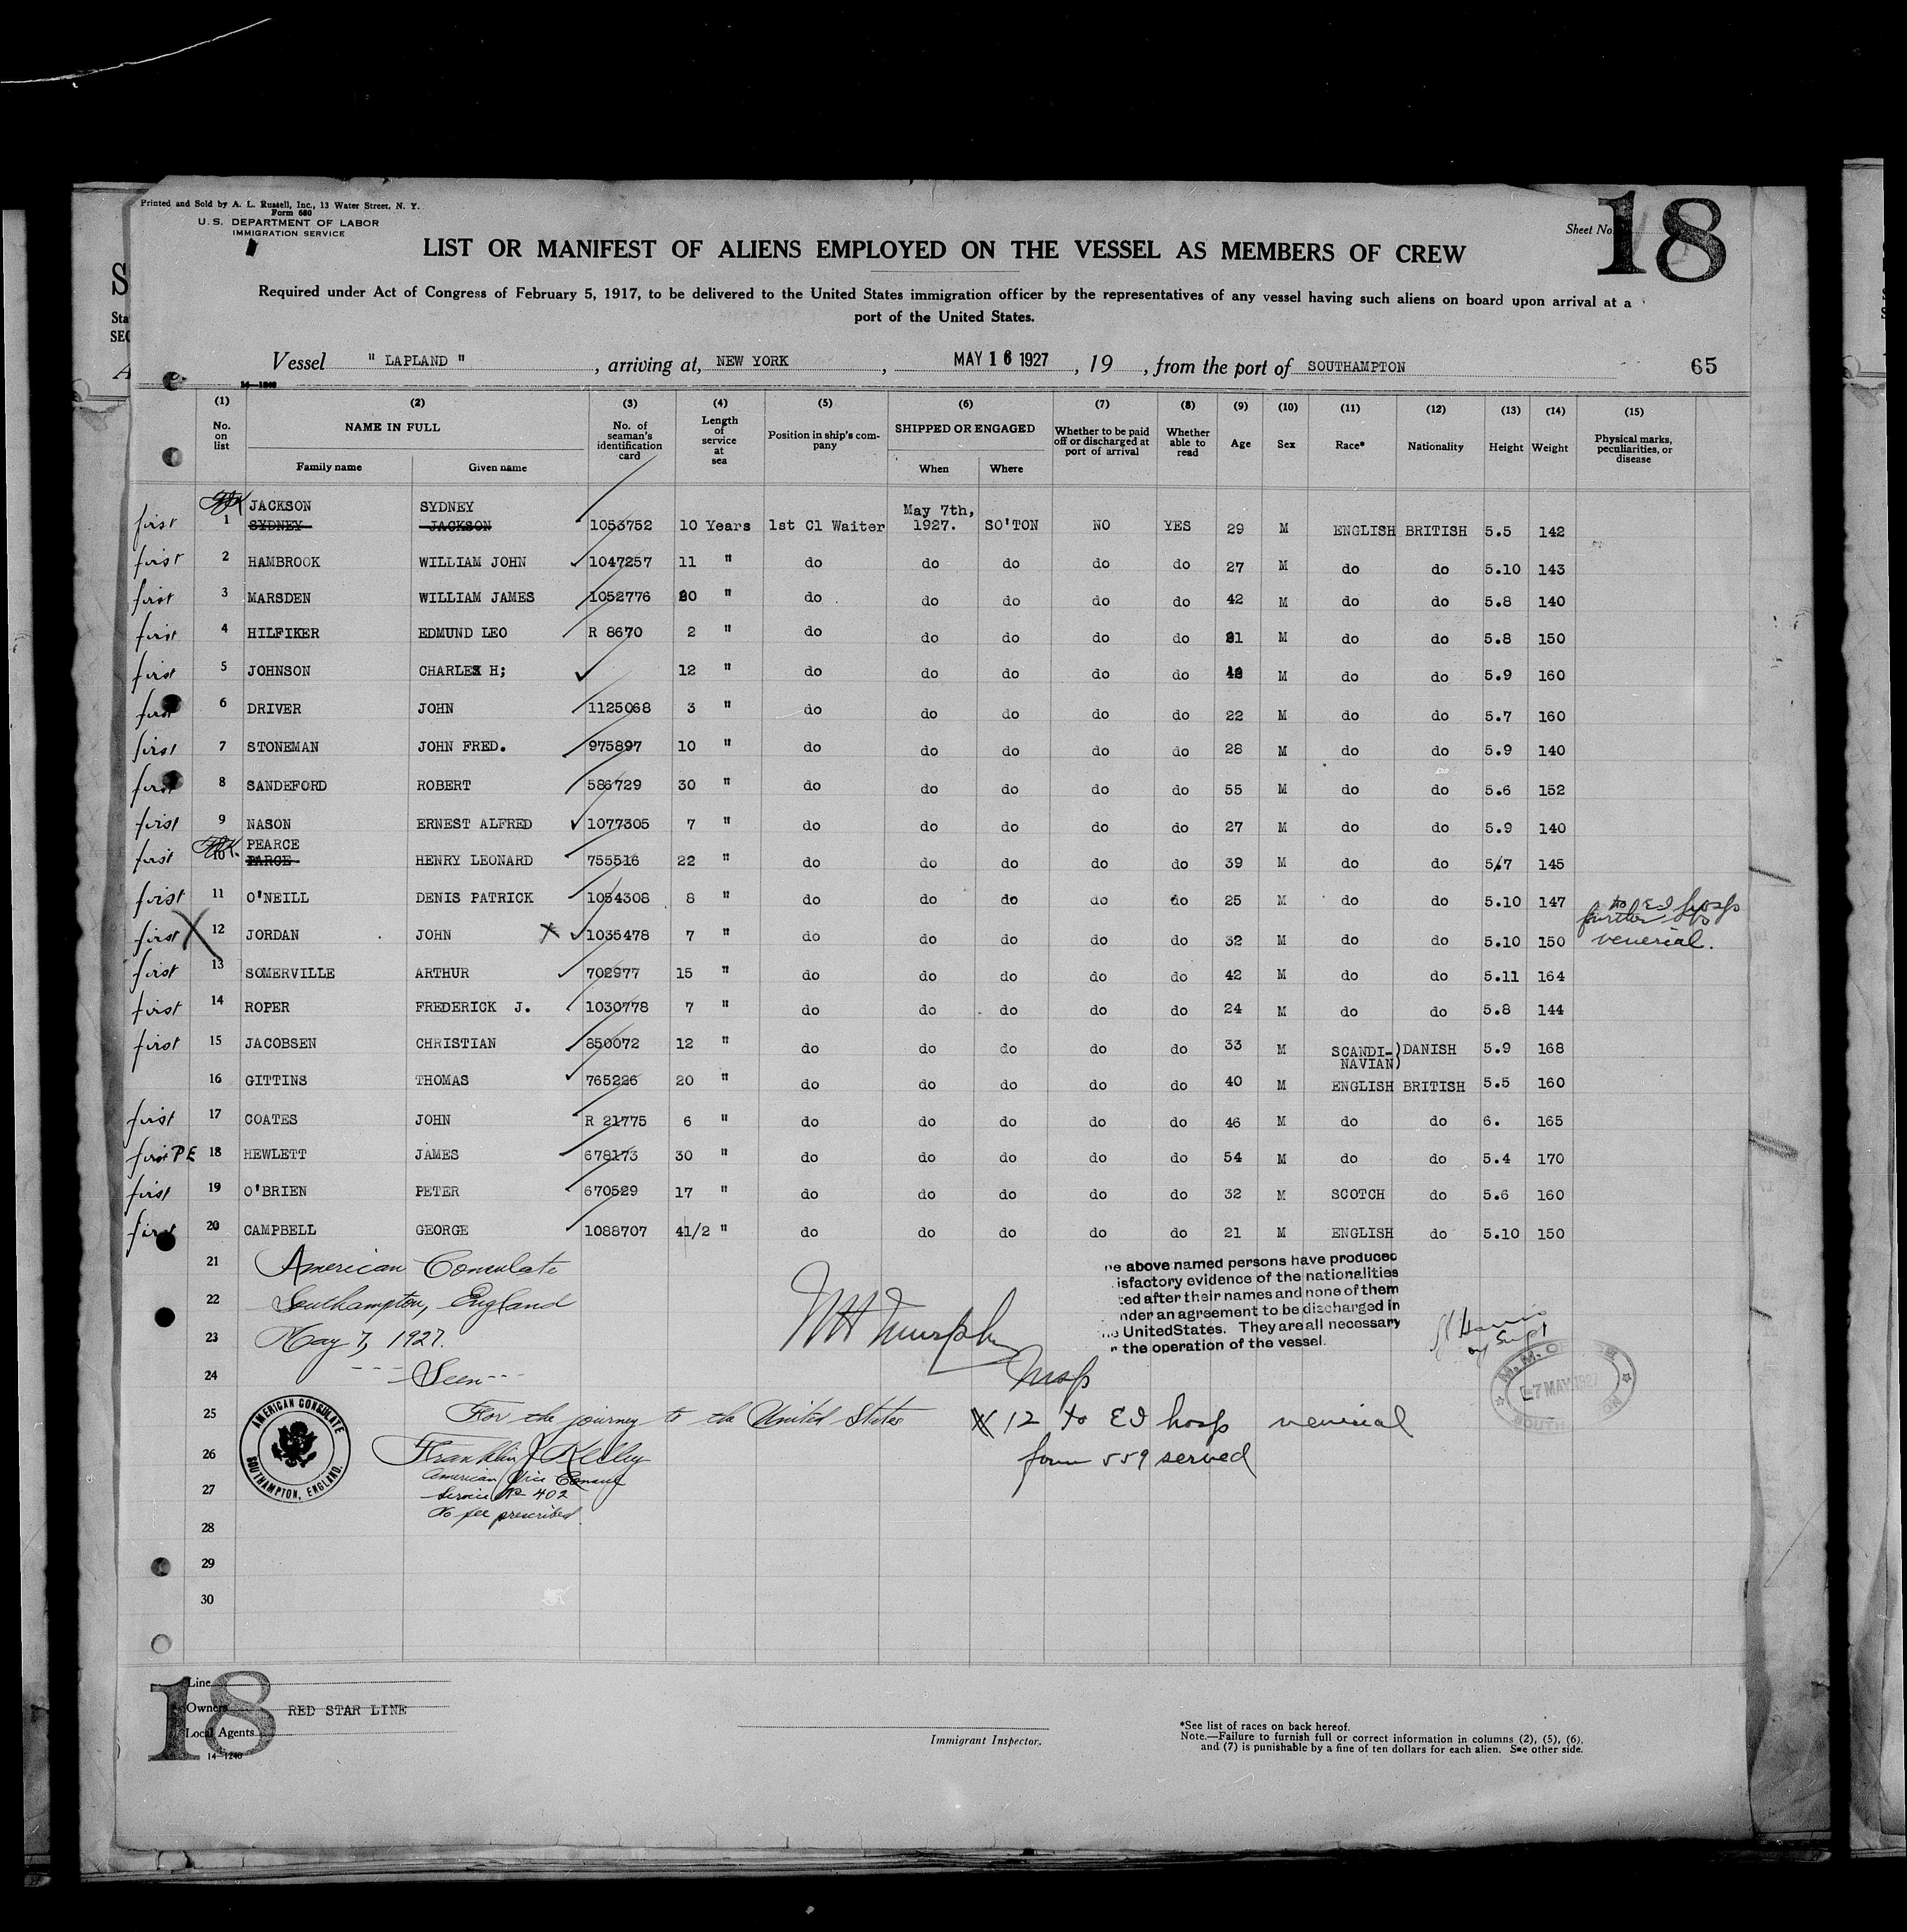 Printed and Sold by A. L. Russell, Inc., 13 Water Street, N. Y.
Form 680
U. S. DEPARTMENT OF LABOR
IMMIGRATION SERVICE
Sheet No.
18
LIST OR MANIFEST OF ALIENS EMPLOYED ON THE VESSEL AS MEMBERS OF CREW
Required under Act of Congress of February 5, 1917, to be delivered to the United States immigration officer by the representatives of any vessel having such aliens on board upon arrival at a
port of the United States.
Vessel " LAPLAND " , arriving at, NEW YORK , MAY 16 1927 , 19 , from the port of SOUTHAMPTON 65
14—1240
(1) (2) (3) (4) (5) (6) (7) (8) (9) (10) (11) (12) (13) (14) (15)
No. on list NAME IN FULL Family name Given name No. of seaman's identification card Length of service at sea Position in ship's company SHIPPED OR ENGAGED When Where Whether to be paid off or discharged at port of arrival Whether able to read Age Sex Race* Nationality Height Weight Physical marks, peculiarities, or disease
JACKSON SYDNEY May 7th,
first 1 SYDNEY JACKSON 1053752 10 Years 1st Cl Waiter 1927. SO'TON NO YES 29 M ENGLISH BRITISH 5.5 142
first 2 HAMBROOK WILLIAM JOHN 1047257 11 " do do do do do 27 M do do 5.10 143
first 3 MARSDEN WILLIAM JAMES 1052776 20 " do do do do do 42 M do do 5.8 140
first 4 HILFIKER EDMUND LEO R 8670 2 " do do do do do 21 M do do 5.8 150
first 5 JOHNSON CHARLES H; 12 " do do do do do M do do 5.9 160
first 6 DRIVER JOHN 1125068 3 " do do do do do 22 M do do 5.7 160
first 7 STONEMAN JOHN FRED. 975897 10 " do do do do do 28 M do do 5.9 140
first 8 SANDEFORD ROBERT 586729 30 " do do do do do 55 M do do 5.6 152
first 9 NASON ERNEST ALFRED 1077305 7 " do do do do do 27 M do do 5.9 140
PEARCE
first 10 PARCE HENRY LEONARD 755516 22 " do do do do do 39 M do do 5.7 145
first 11 O'NEILL DENIS PATRICK 1054308 8 " do do do do do 25 M do do 5.10 147
to E I hosp
further
first X 12 JORDAN JOHN X 1035478 7 " do do do do do 32 M do do 5.10 150 venerial.
first 13 SOMERVILLE ARTHUR 702977 15 " do do do do do 42 M do do 5.11 164
first 14 ROPER FREDERICK J. 1030778 7 " do do do do do 24 M do do 5.8 144
first 15 JACOBSEN CHRISTIAN 850072 12 " do do do do do 33 M SCANDI-NAVIAN) DANISH 5.9 168
16 GITTINS THOMAS 765226 20 " do do do do do 40 M ENGLISH BRITISH 5.5 160
first 17 COATES JOHN R 21775 6 " do do do do do 46 M do do 6. 165
first PE 18 HEWLETT JAMES 678173 30 " do do do do do 54 M do do 5.4 170
first 19 O'BRIEN PETER 670529 17 " do do do do do 32 M SCOTCH do 5.6 160
first 20 CAMPBELL GEORGE 1088707 41/2 " do do do do do 21 M ENGLISH do 5.10 150
21 American Consulate
22 Southampton, England
23 May 7, 1927.
24 --- Seen ---
25 For the journey to the United States
26 Franklin J Kelley
American Vice Consul
27 Service No 402
No fee prescribed.
28
29
30
AMERICAN CONSULATE
SOUTHAMPTON, ENGLAND.
WH Murphy
Insp
above named persons have produced
isfactory evidence of the nationalities
ted after their names and none of them
nder an agreement to be discharged in
United States. They are all necessary
the operation of the vessel.
Supt
7 MAY 1927
X 12 to E I hosp venerial
form 559 served
18
Line
Owners RED STAR LINE
Local Agents
14—1240
Immigrant Inspector.
*See list of races on back hereof.
Note.—Failure to furnish full or correct information in columns (2), (5), (6),
and (7) is punishable by a fine of ten dollars for each alien. See other side.